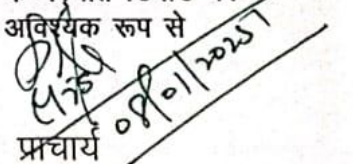 अविश्यक रूप से
08/01/2025
प्राचार्य